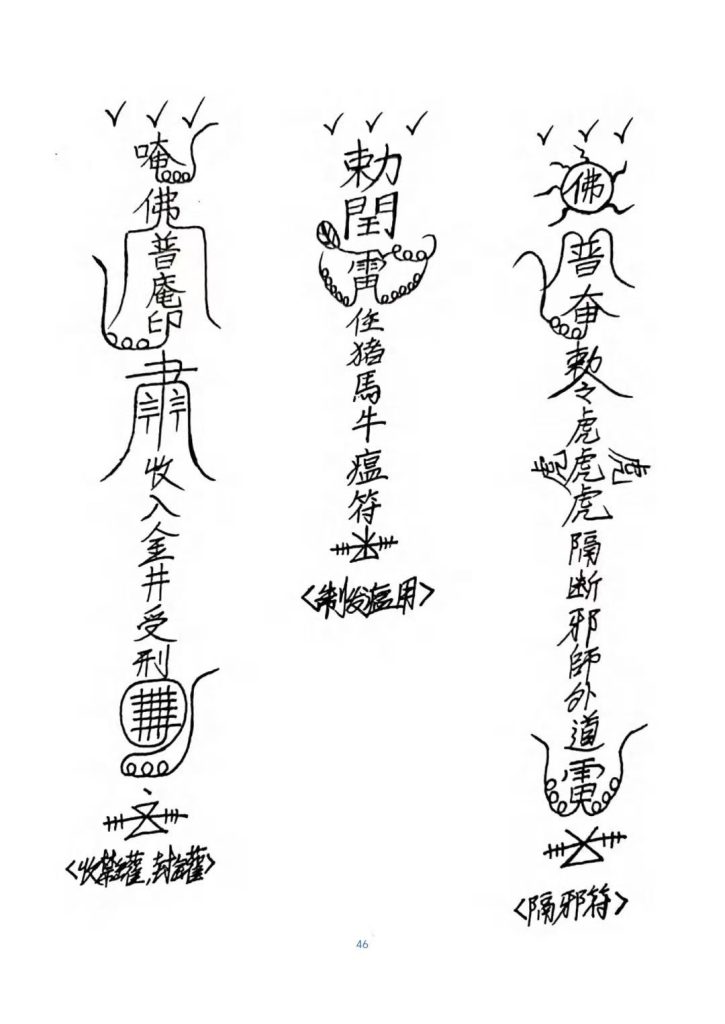 唵佛普庵印
收入金井受刑
<收禁罐,封罐>
勅閏雷
猪馬牛瘟符
<制瘟用>
佛
普奄勅令虎虎虎
虎
隔断邪師外道雷
<隔邪符>
46